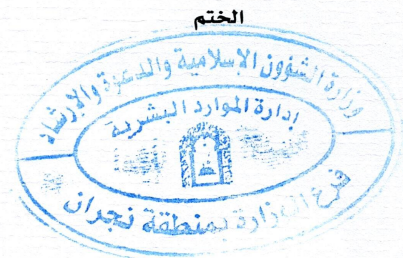 الختم
وزارة الشؤون الإسلامية والدعوة والإرشاد
إدارة الموارد البشرية
فرع الوزارة بمنطقة نجران